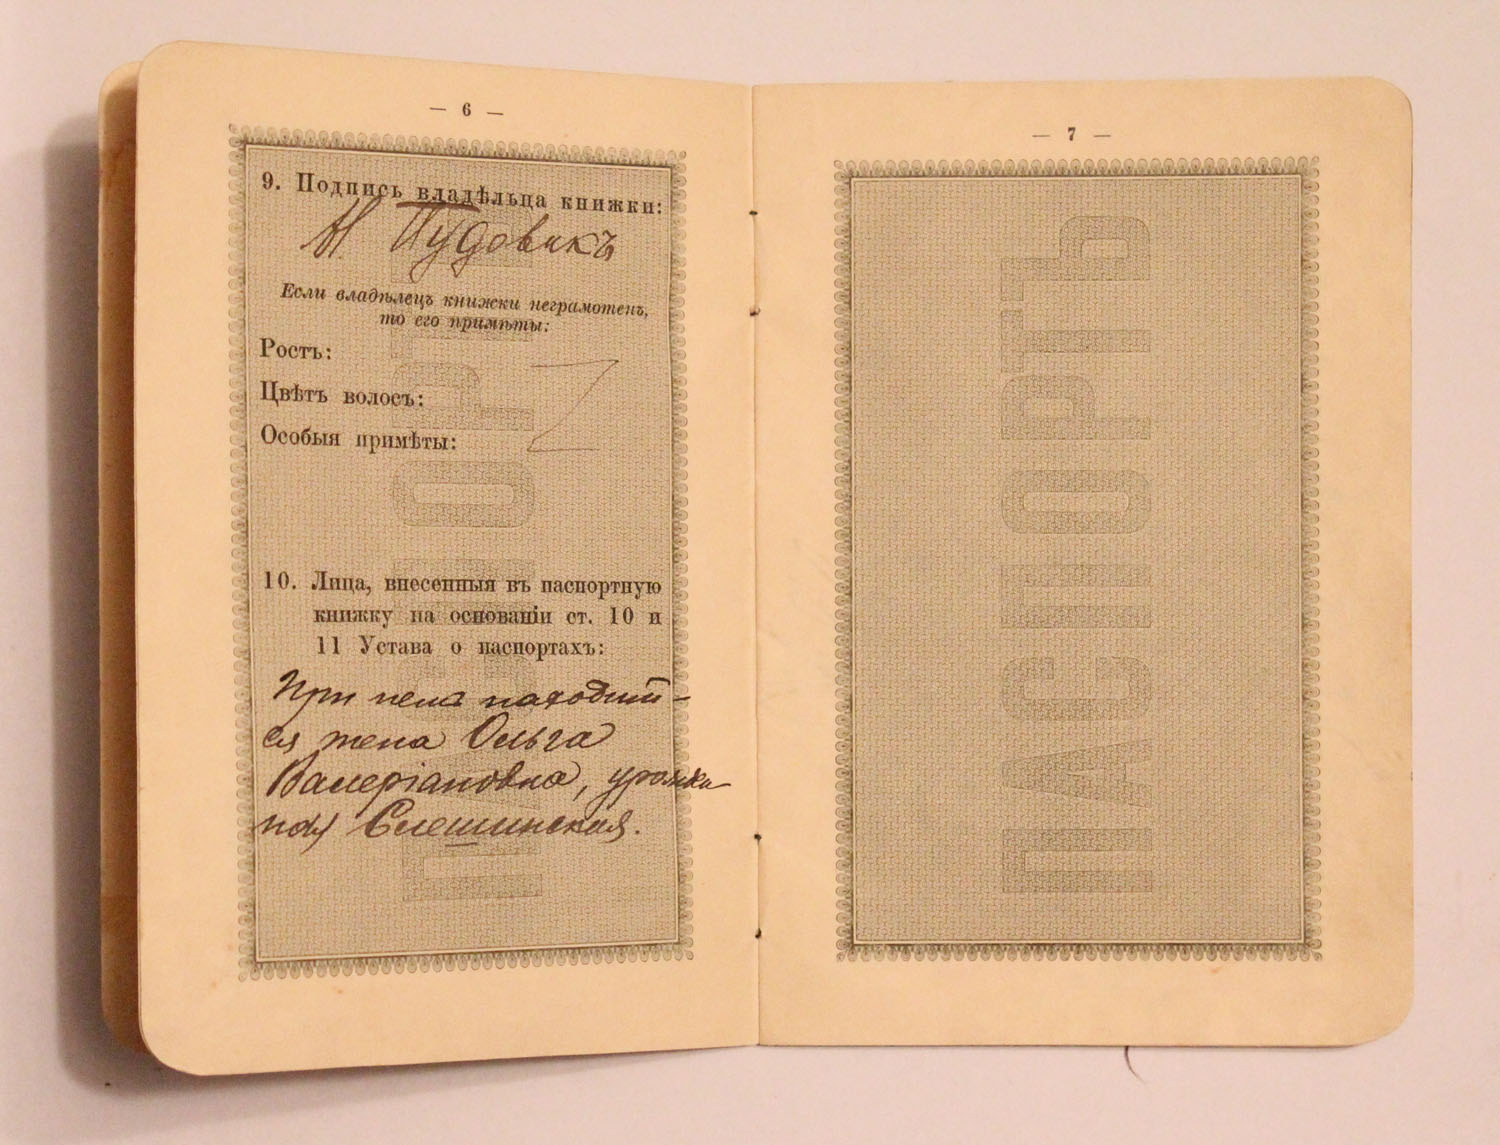 — 6 —
9. Подпись владѣльца книжки:
Н Пудовикъ
Если владѣлецъ книжки неграмотенъ,
то его примѣты:
Ростъ:
Цвѣтъ волосъ:
Особыя примѣты:
10. Лица, внесенныя въ паспортную
книжку на основаніи ст. 10 и
11 Устава о паспортахъ:
При немъ находит-
ся жена Ольга
Валеріановна, урожден
ная Слешинская.
ПАСПОРТЪ
— 7 —
ПАСПОРТЪ